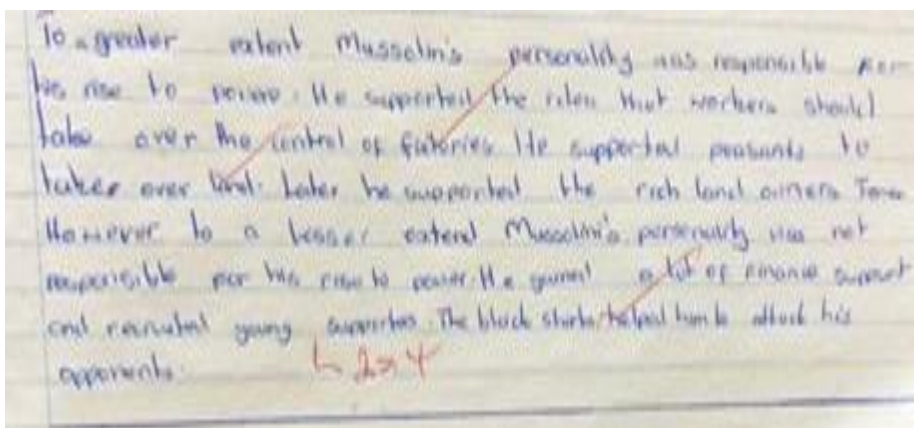 To a greater extent Mussolin's personality was responsible for
his rise to power. He supported the idea that workers should
take over the control of factories He supported peasants to
takes over land. Later he supported the rich land owners
However to a lesser extend Mussolini's personality was not
responsible for his rise to power. He gained a lot of finance support
and recruited young supporters. The black shirts helped him to attack his
opponents.